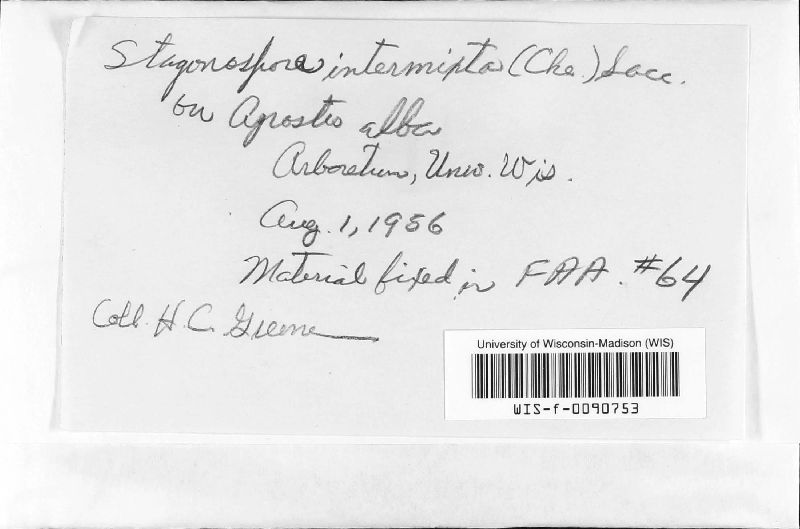 Stagonospora intermixta (Cke.) Sacc.
on Agrostis alba
Arboretum, Univ. Wis.
Aug. 1, 1956
Material fixed in FAA. #64
Coll. H. C. Greene
University of Wisconsin-Madison (WIS)
WIS-f-0090753